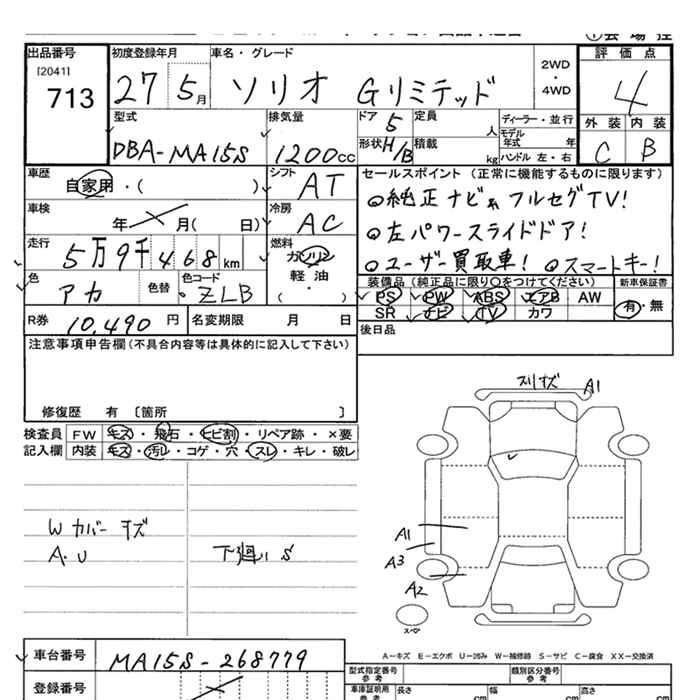 ①会場控
出品番号
[2041]
713
初度登録年月
27 5月
車名・グレード
ソリオ Gリミテッド
2WD
・
4WD
評価点
4
外装 内装
C B
型式
DBA-MA15S
排気量
1200cc
ドア 5
定員 人
ディーラー・並行
モデル年式 年
形状 H/B
積載 kg
ハンドル 左・右
車歴
自家用・( )
シフト
AT
車検
年 月( 日)
冷房
AC
走行
5万9千468km
燃料
ガソリン
軽油
( ・ )
色
アカ
色替
色コード
ZLB
R券 10,490 円
名変期限 月 日
セールスポイント (正常に機能するものに限ります)
◎純正ナビ& フルセグTV!
◎左パワースライドドア!
◎ユーザー買取車! ◎スマートキー!
装備品 (純正品に限り○をつけてください)
新車保証書
PS PW ABS エアB AW
SR ナビ TV カワ
有・無
後日品
注意事項申告欄(不具合内容等は具体的に記入して下さい)
修復歴 有 〔箇所 〕
検査員 FW キズ・飛石・ヒビ割・リペア跡・×要
記入欄 内装 キズ・汚レ・コゲ・穴・スレ・キレ・破レ
W カバー キズ
A.U
下廻り S
スリキズ A1
A1
A3
A2
スペア
A―キズ E―エクボ U―凹み W―補修跡 S―サビ C―腐食 XX―交換済
車台番号 MA15S-268779
登録番号
型式指定番号
参考
類別区分番号
参考
車庫証明用
参考
長さ cm
幅 cm
高さ cm